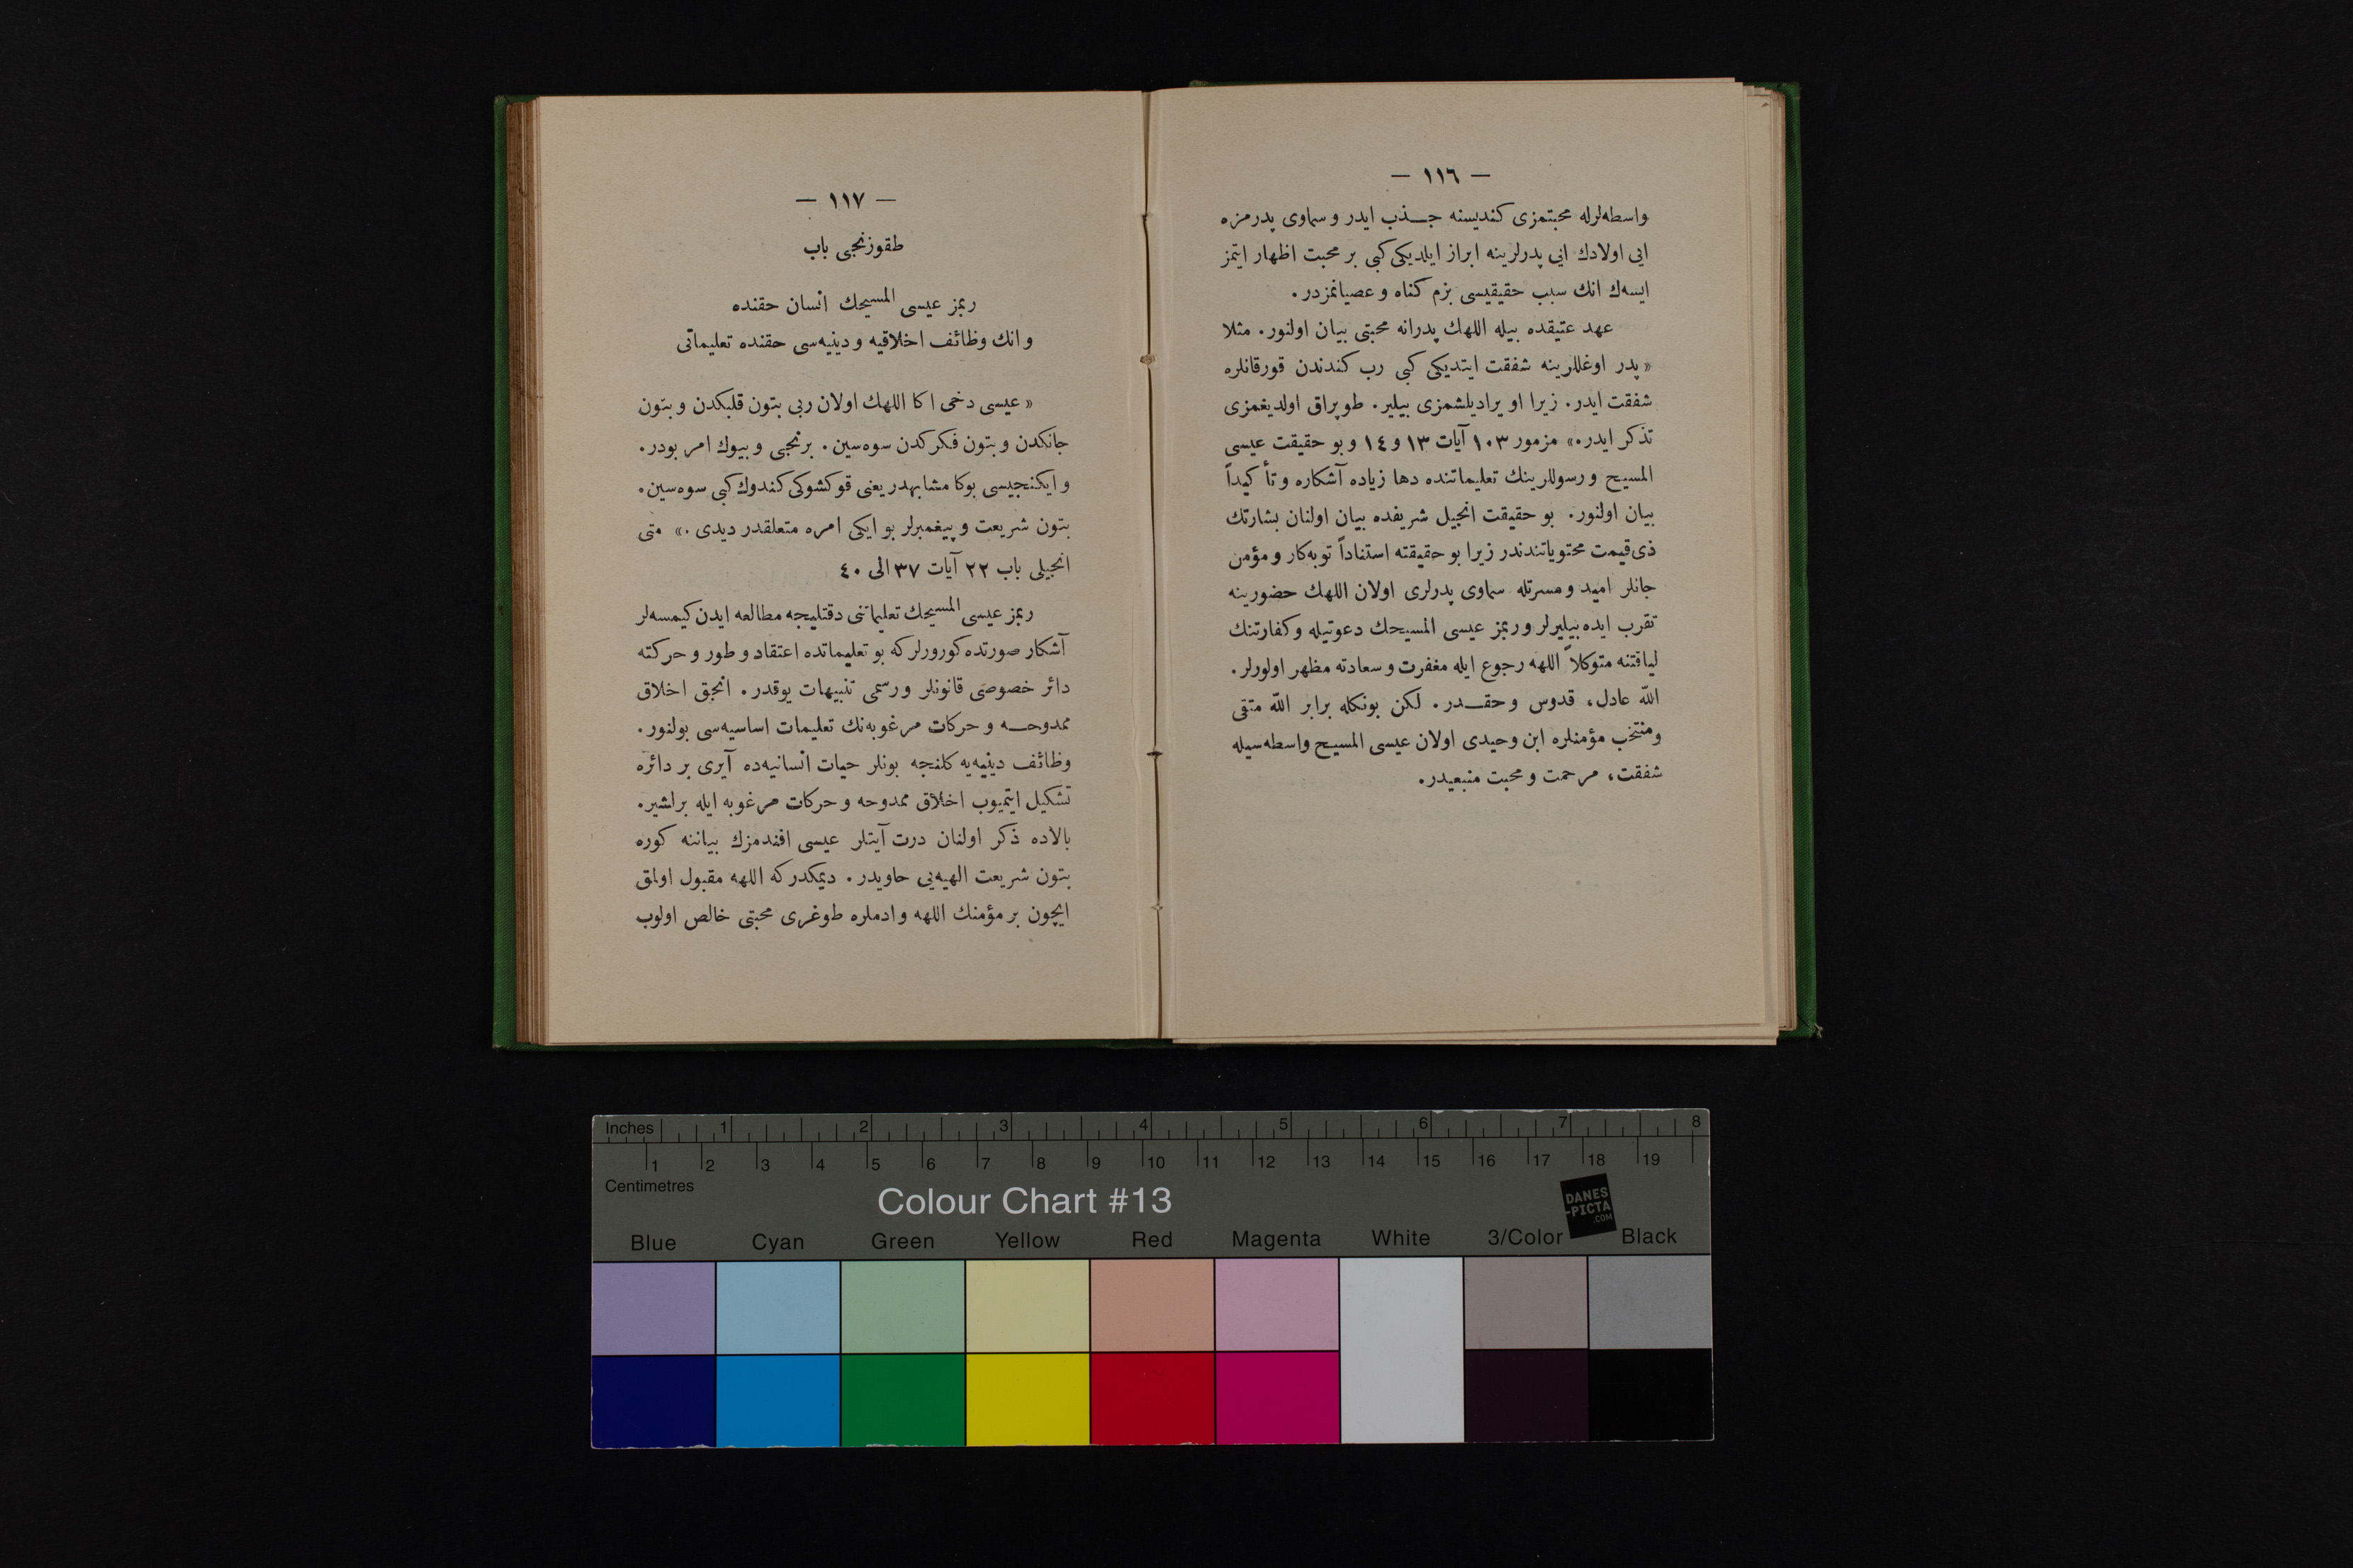 — ١١٦ —
واسطه‌لرله محبتمزی کندیسنه جـــذب ایدر و سماوی پدرمزه
ایی اولادك ایی پدرلرینه ابراز ایلدیکی کبی بر محبت اظهار ایتمز
ایسه‌ك انك سبب حقیقیسی بزم کناه و عصیانمزدر.
عهد عتیقده بیله اللهك پدرانه محبتی بیان اولنور. مثلا
« پدر اوغللرینه شفقت ایتدیکی کبی رب کندندن قورقانلره
شفقت ایدر. زیرا او یرادیلشمزی بیلیر. طوپراق اولدیغمزی
تذکر ایدر.» مزمور ١٠٣ آیات ١٣ و ١٤ و بو حقیقت عیسی
المسیح و رسوللرینك تعلیماتنده دها زیاده آشکاره و تأکیداً
بیان اولنور. بو حقیقت انجیل شریفده بیان اولنان بشارتك
ذی‌قیمت محتویاتندندر زیرا بو حقیقته استناداً توبه‌کار و مؤمن
جانلر امید و مسرتله سماوی پدرلری اولان اللهك حضورینه
تقرب ایده بیلیرلر و ربمز عیسی المسیحك دعوتیله و کفارتنك
لیاقتنه متوکلاً اللهه رجوع ایله مغفرت و سعادته مظهر اولورلر.
الله عادل، قدوس و حقـــدر. لکن بونکله برابر الله متقی
و منتخب مؤمنلره ابن وحیدی اولان عیسی المسیح واسطه‌سیله
شفقت، مرحمت و محبت منبعیدر.
— ١١٧ —
طقوزنجی باب
ربمز عیسی المسیحك انسان حقنده
و انك وظائف اخلاقیه و دینیه‌سی حقنده تعلیماتی
« عیسی دخی اکا اللهك اولان ربی بتون قلبکدن و بتون
جانکدن و بتون فکرکدن سوه‌سین. برنجی و بیوك امر بودر.
و ایکنجیسی بوکا مشابهدر یعنی قوکشوکی کندوك کبی سوه‌سین.
بتون شریعت و پیغمبرلر بو ایکی امره متعلقدر دیدی.» متی
انجیلی باب ٢٢ آیات ٣٧ الی ٤٠
ربمز عیسی المسیحك تعلیماتنی دقتلیجه مطالعه ایدن کیمسه‌لر
آشکار صورتده کورورلر که بو تعلیماتده اعتقاد و طور و حرکته
دائر خصوصی قانونلر و رسمی تنبیهات یوقدر. انجق اخلاق
ممدوحـــه و حرکات مرغوبه‌نك تعلیمات اساسیه‌سی بولنور.
وظائف دینیه‌یه کلنجه بونلر حیات انسانیه‌ده آیری بر دائره
تشکیل ایتمیوب اخلاق ممدوحه و حرکات مرغوبه ایله براشیر.
بالاده ذکر اولنان درت آیتلر عیسی افندمزك بیاننه کوره
بتون شریعت الهیه‌یی حاویدر. دیمکدر که اللهه مقبول اولمق
ایچون بر مؤمنك اللهه و ادملره طوغری محبتی خالص اولوب
Inches 1 2 3 4 5 6 7 8
1 2 3 4 5 6 7 8 9 10 11 12 13 14 15 16 17 18 19
Centimetres
Colour Chart #13
DANES
-PICTA
.COM
Blue Cyan Green Yellow Red Magenta White 3/Color Black